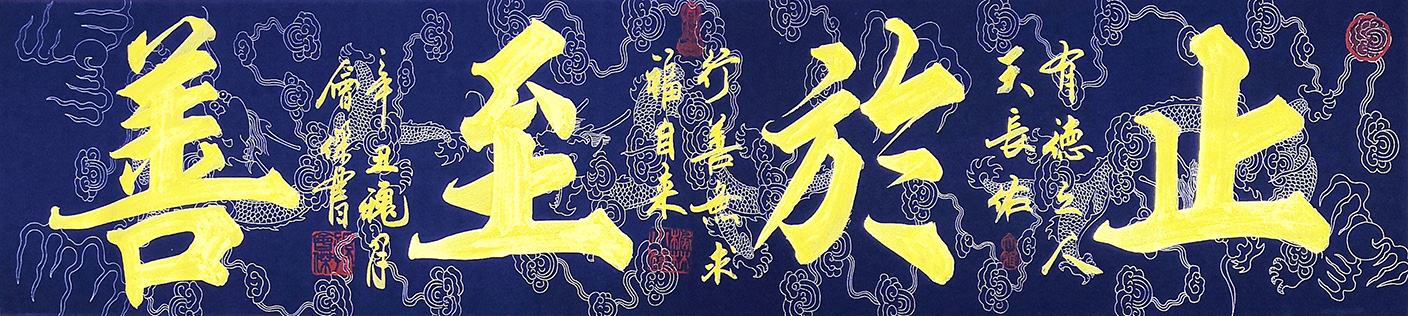 止於至善
有德之人
天長佑
行善無求
福自来
辛丑槐月
書